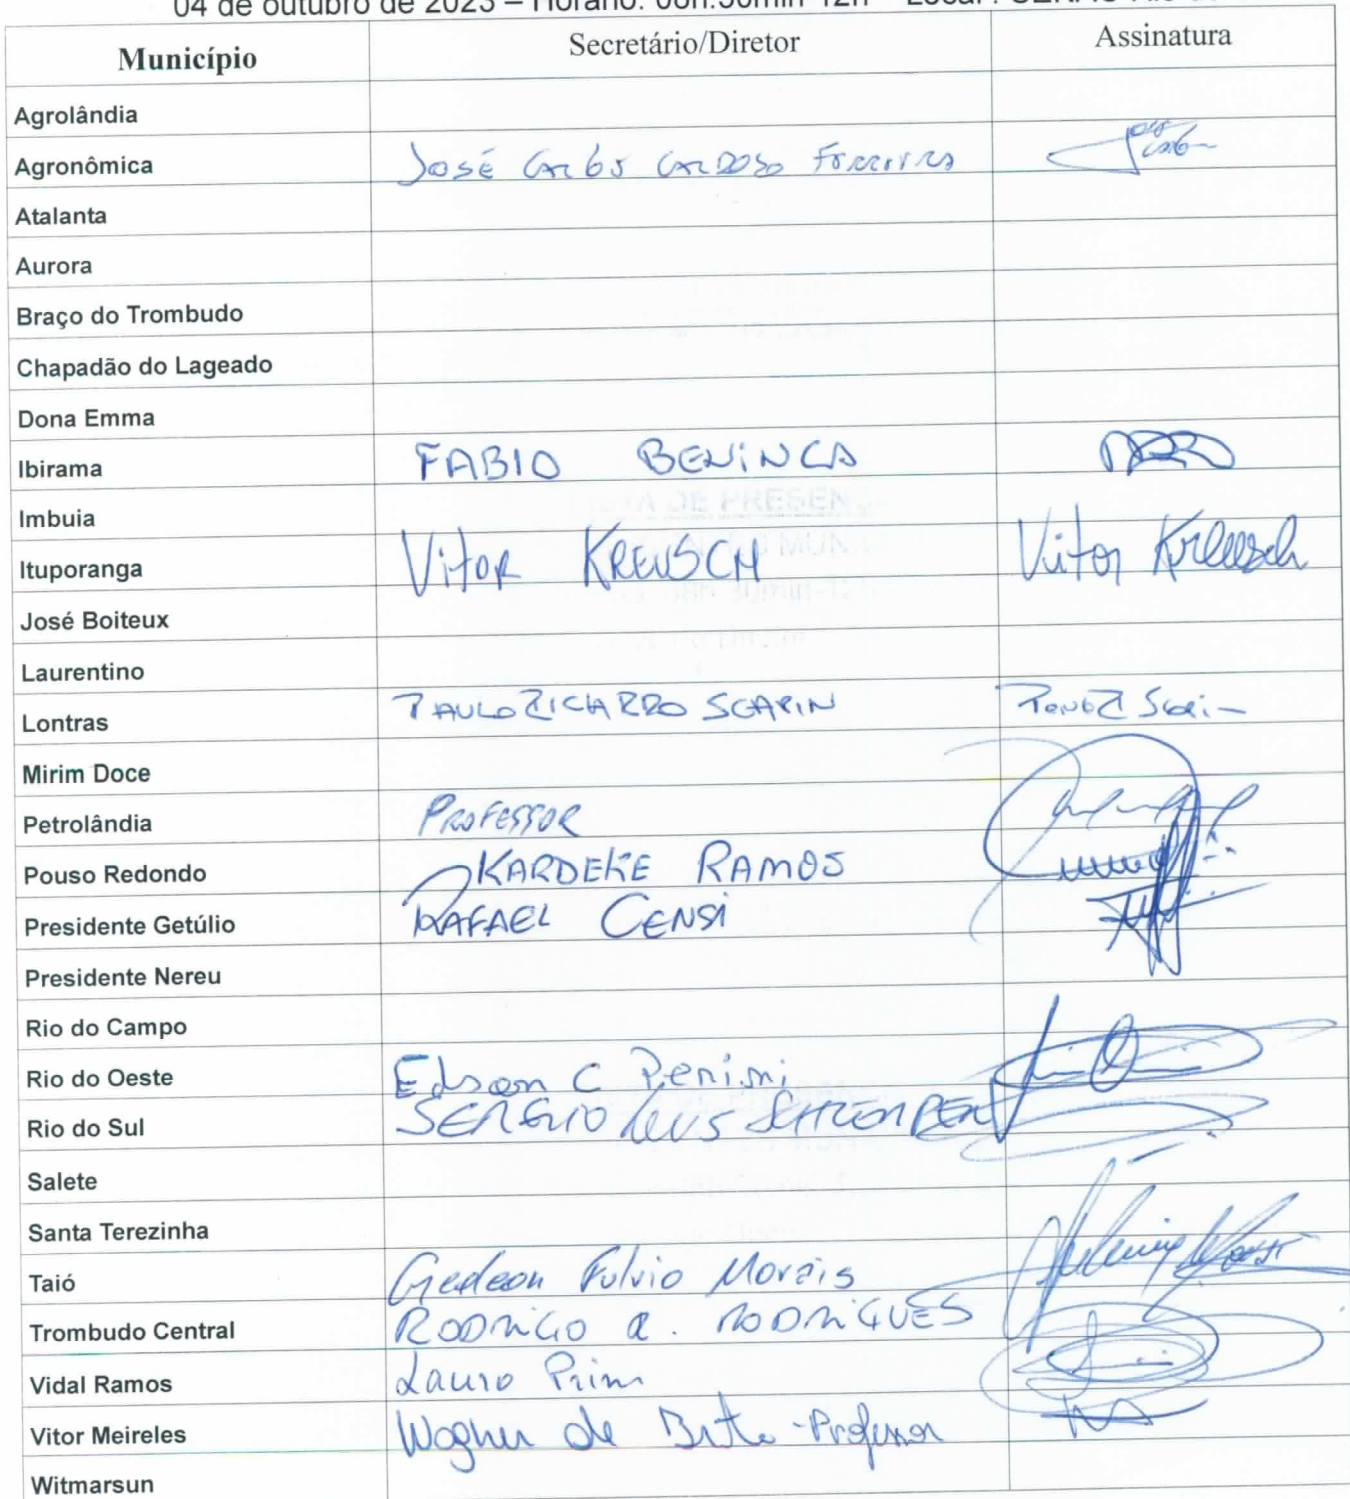 04 de outubro de 2023 – Horário: 08h:30min-12h – Local
Município Secretário/Diretor Assinatura
Agrolândia
Agronômica José Carlos Cardoso Ferreira
Atalanta
Aurora
Braço do Trombudo
Chapadão do Lageado
Dona Emma
Ibirama FABIO BENINCA
Imbuia
Ituporanga Vitor KREUSCH Vitor Kreusch
José Boiteux
Laurentino
Lontras PAULO RICARDO SCARIN
Mirim Doce
Petrolândia PROFESSOR
Pouso Redondo KARDEKE RAMOS
Presidente Getúlio RAFAEL CENSI
Presidente Nereu
Rio do Campo
Rio do Oeste Edson C Penini
Rio do Sul SERGIO
Salete
Santa Terezinha
Taió Gedeon Fulvio Morais
Trombudo Central RODRIGO R. RODRIGUES
Vidal Ramos Lauro Prim
Vitor Meireles Wagner de Brito - Professor
Witmarsun